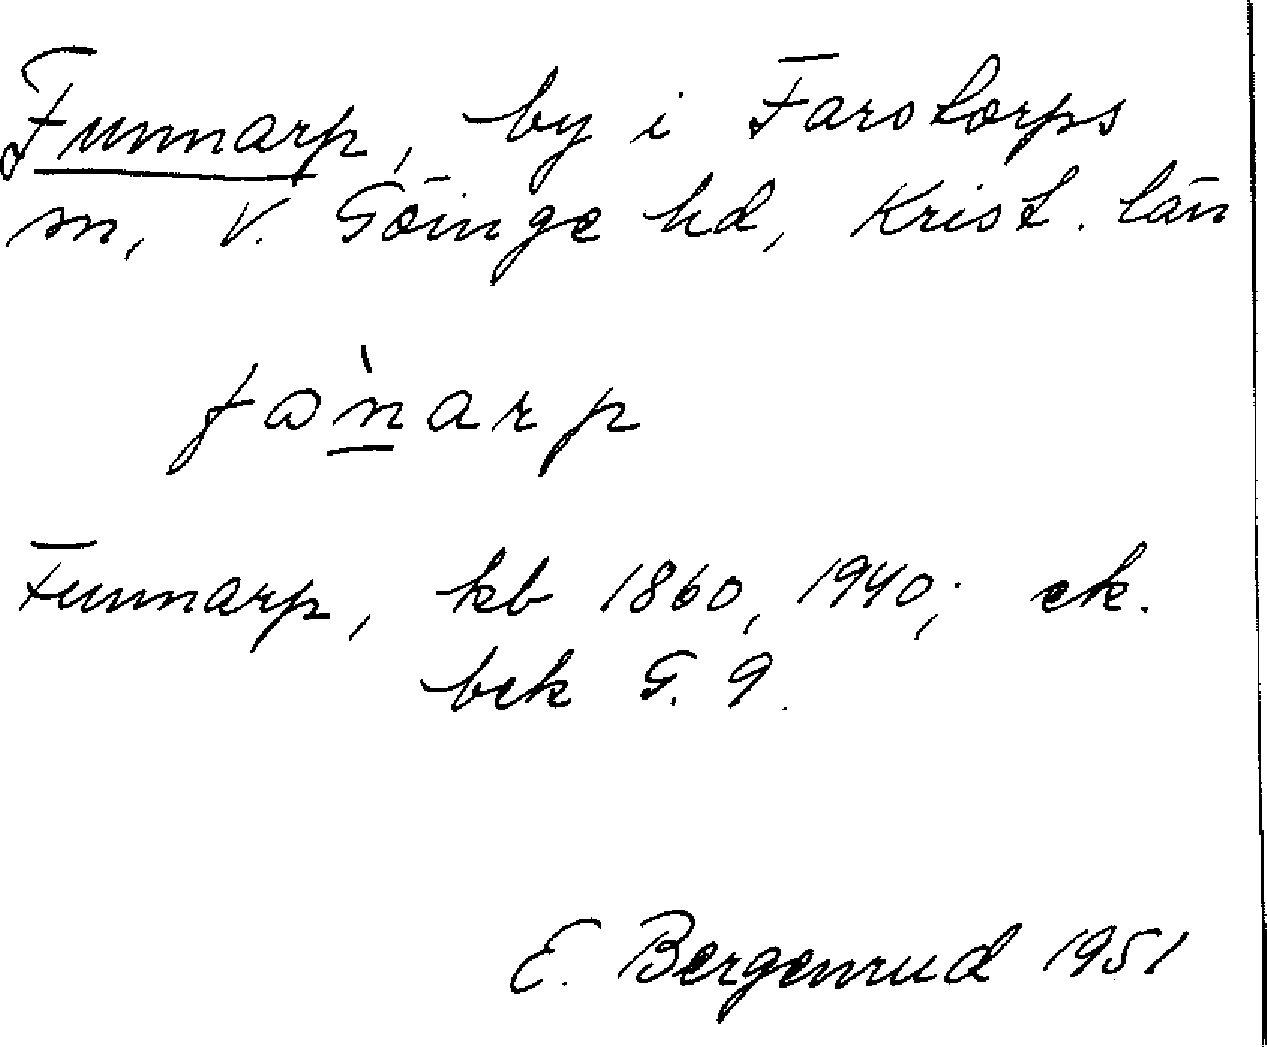 Funnarp, by i Farstorps
sn, V. Göinge hd, Krist. län
fɷ̀narp
Funnarp, kb 1860, 1940; ek.
bek G. 9.
E. Bergenrud 1951